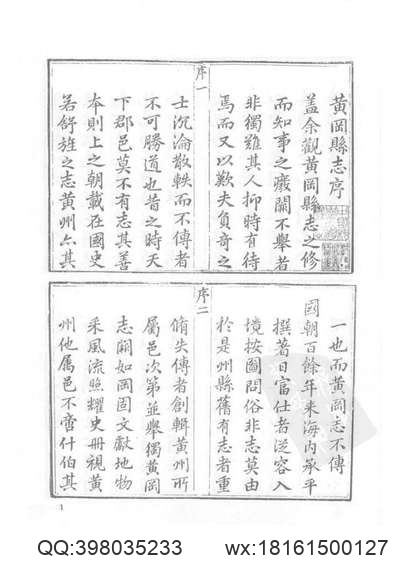 黃岡縣志序
蓋余觀黃岡縣志之修
而知事之廢闕不舉者
非獨難其人抑時有待
焉而又以歎夫負奇之
序一
士沉淪散軼而不傳者
不可勝道也昔之時天
下郡邑莫不有志其善
本則上之朝載在國史
若舒旌之志黃州亦其
一也而黃岡志不傳
國朝百餘年來海內承平
撰著日富仕者從容入
境按圖問俗非志莫由
於是州縣舊有志者重
序二
脩失傳者創輯黃州所
屬邑次第並舉獨黃岡
志闕如岡固文獻地物
采風流照耀史冊視黃
州他屬邑不啻什伯其
1
QQ:398035233 wx:18161500127